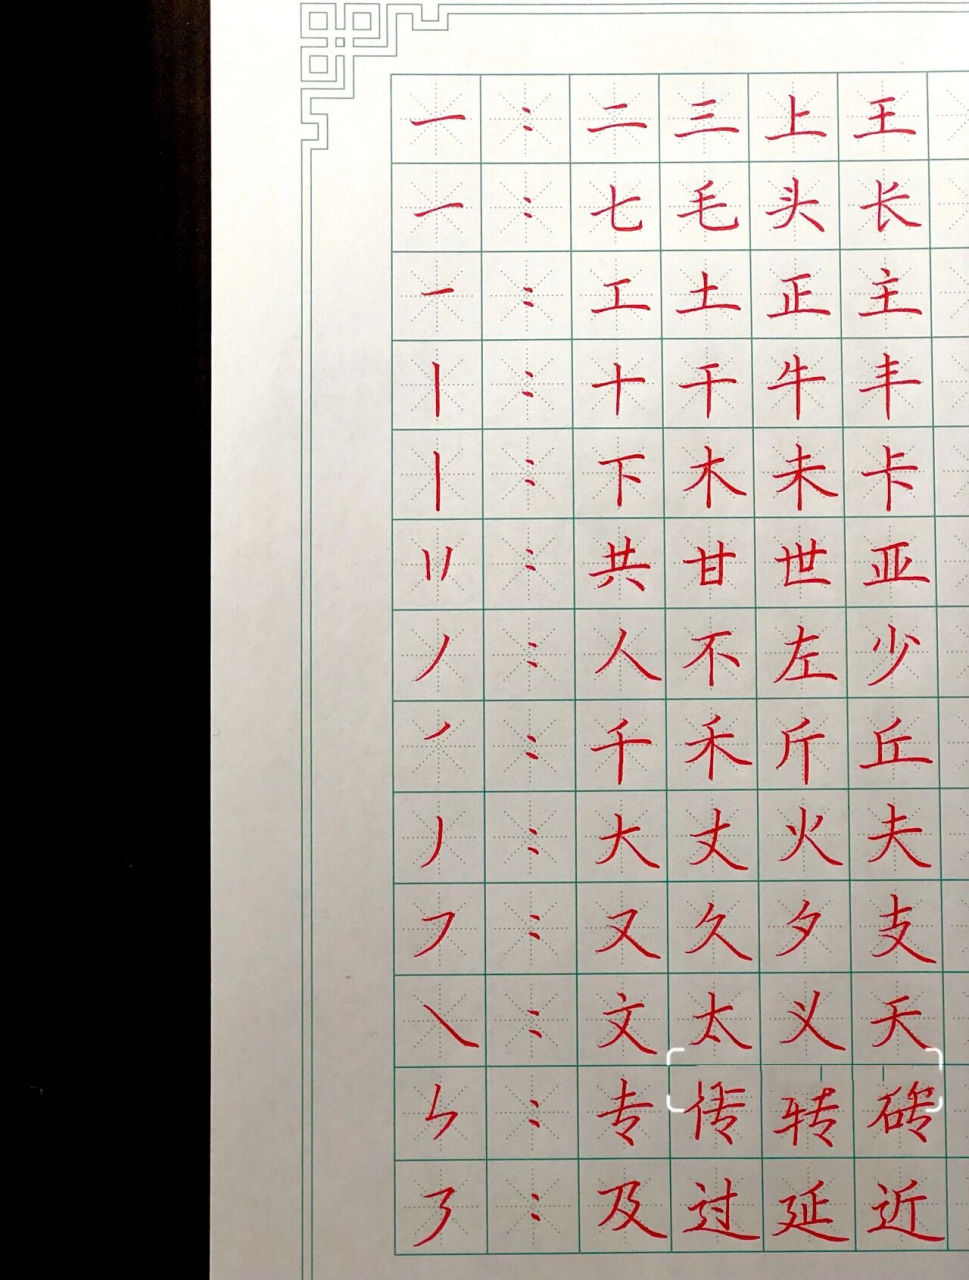 一：二三上王
一：七毛头长
一：工土正主
丨：十干牛丰
丨：下木未卡
〢：共甘世亚
丿：人不左少
㇒：千禾斤丘
丿：大丈火夫
㇇：又久夕支
㇏：文太义天
㇉：专传转砖
㇋：及过延近